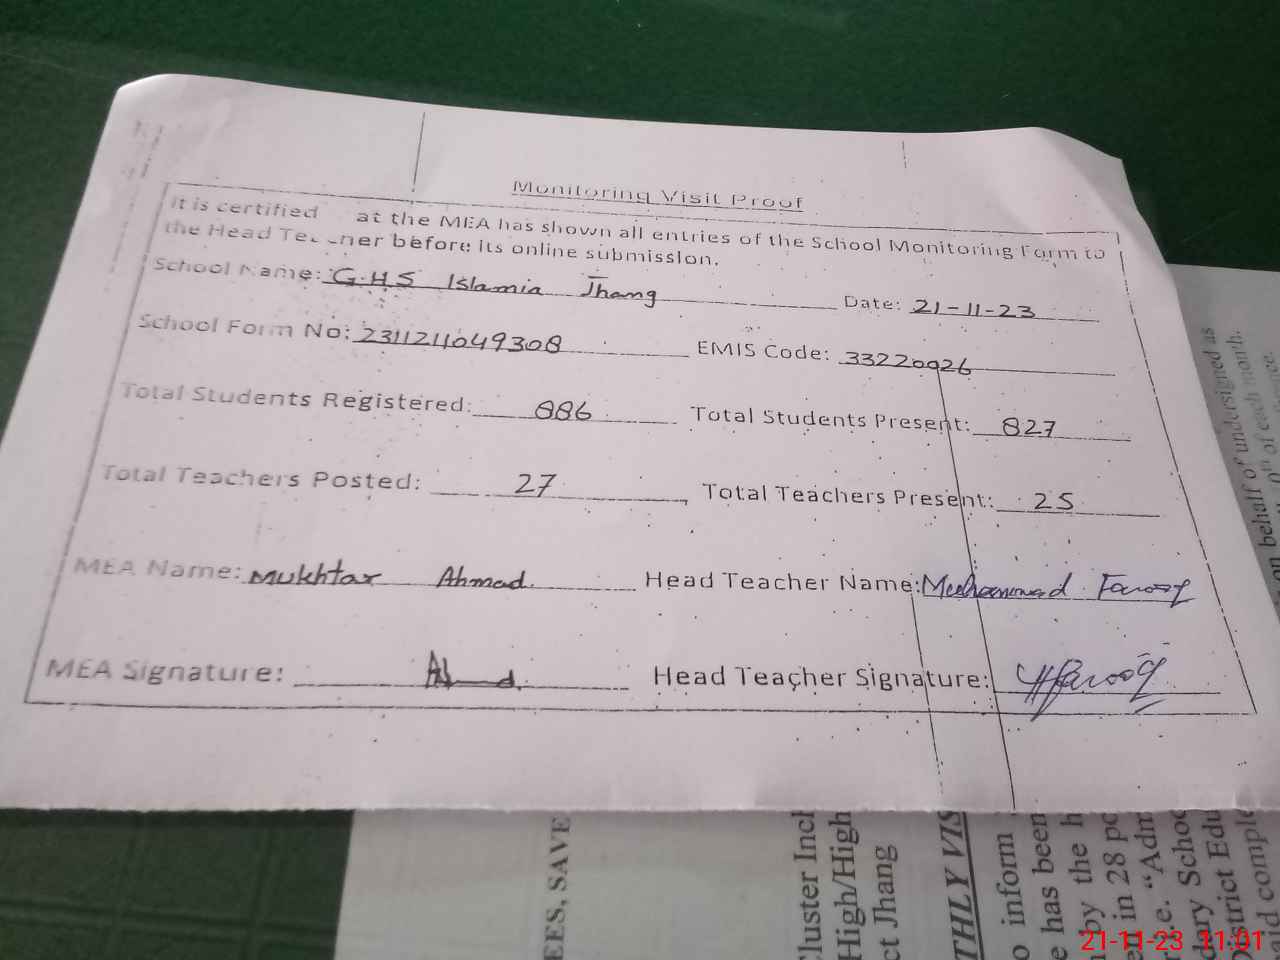 Monitoring Visit Proof
It is certified at the MEA has shown all entries of the School Monitoring Form to
the Head Te. ner before its online submission.
School Name: G.H.S Islamia Jhang Date: 21-11-23
School Form No: 231121049308 EMIS Code: 33220926
Total Students Registered: 886 Total Students Present: 827
Total Teachers Posted: 27 Total Teachers Present: 25
MEA Name: Mukhtar Ahmad. Head Teacher Name: Muhammad Farooq
MEA Signature: Ahmad. Head Teacher Signature: Farooq
on behalf of undersigned as
of each month.
EES, SAVE
Cluster Incl
High/High
ct Jhang
THLY VIS
o inform
e has been
by the h
ed in 28 po
r.e. "Adm
dary Schoo
District Edu
aid comple
21-11-23 11:01